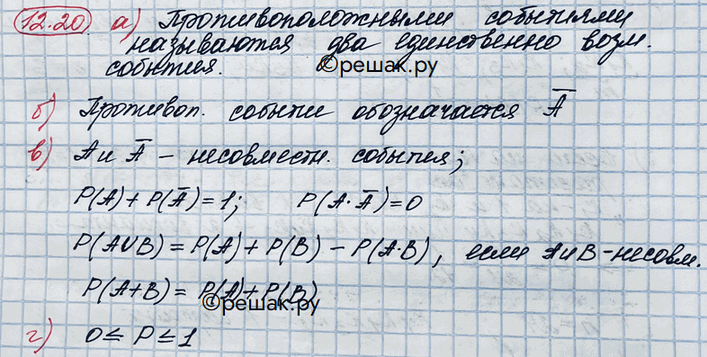 12.20 а) Противоположными событиями
называются два единственно возм.
события. ©решак.ру
б) Противоп. событие обозначается A̅
в) A и A̅ – несовместн. события;
P(A) + P(A̅) = 1; P(A·A̅) = 0
P(A∪B) = P(A) + P(B) – P(A·B), если A и B – несовм.
P(A+B) = P(A) + P(B)
©решак.ру
г) 0 ≤ P ≤ 1